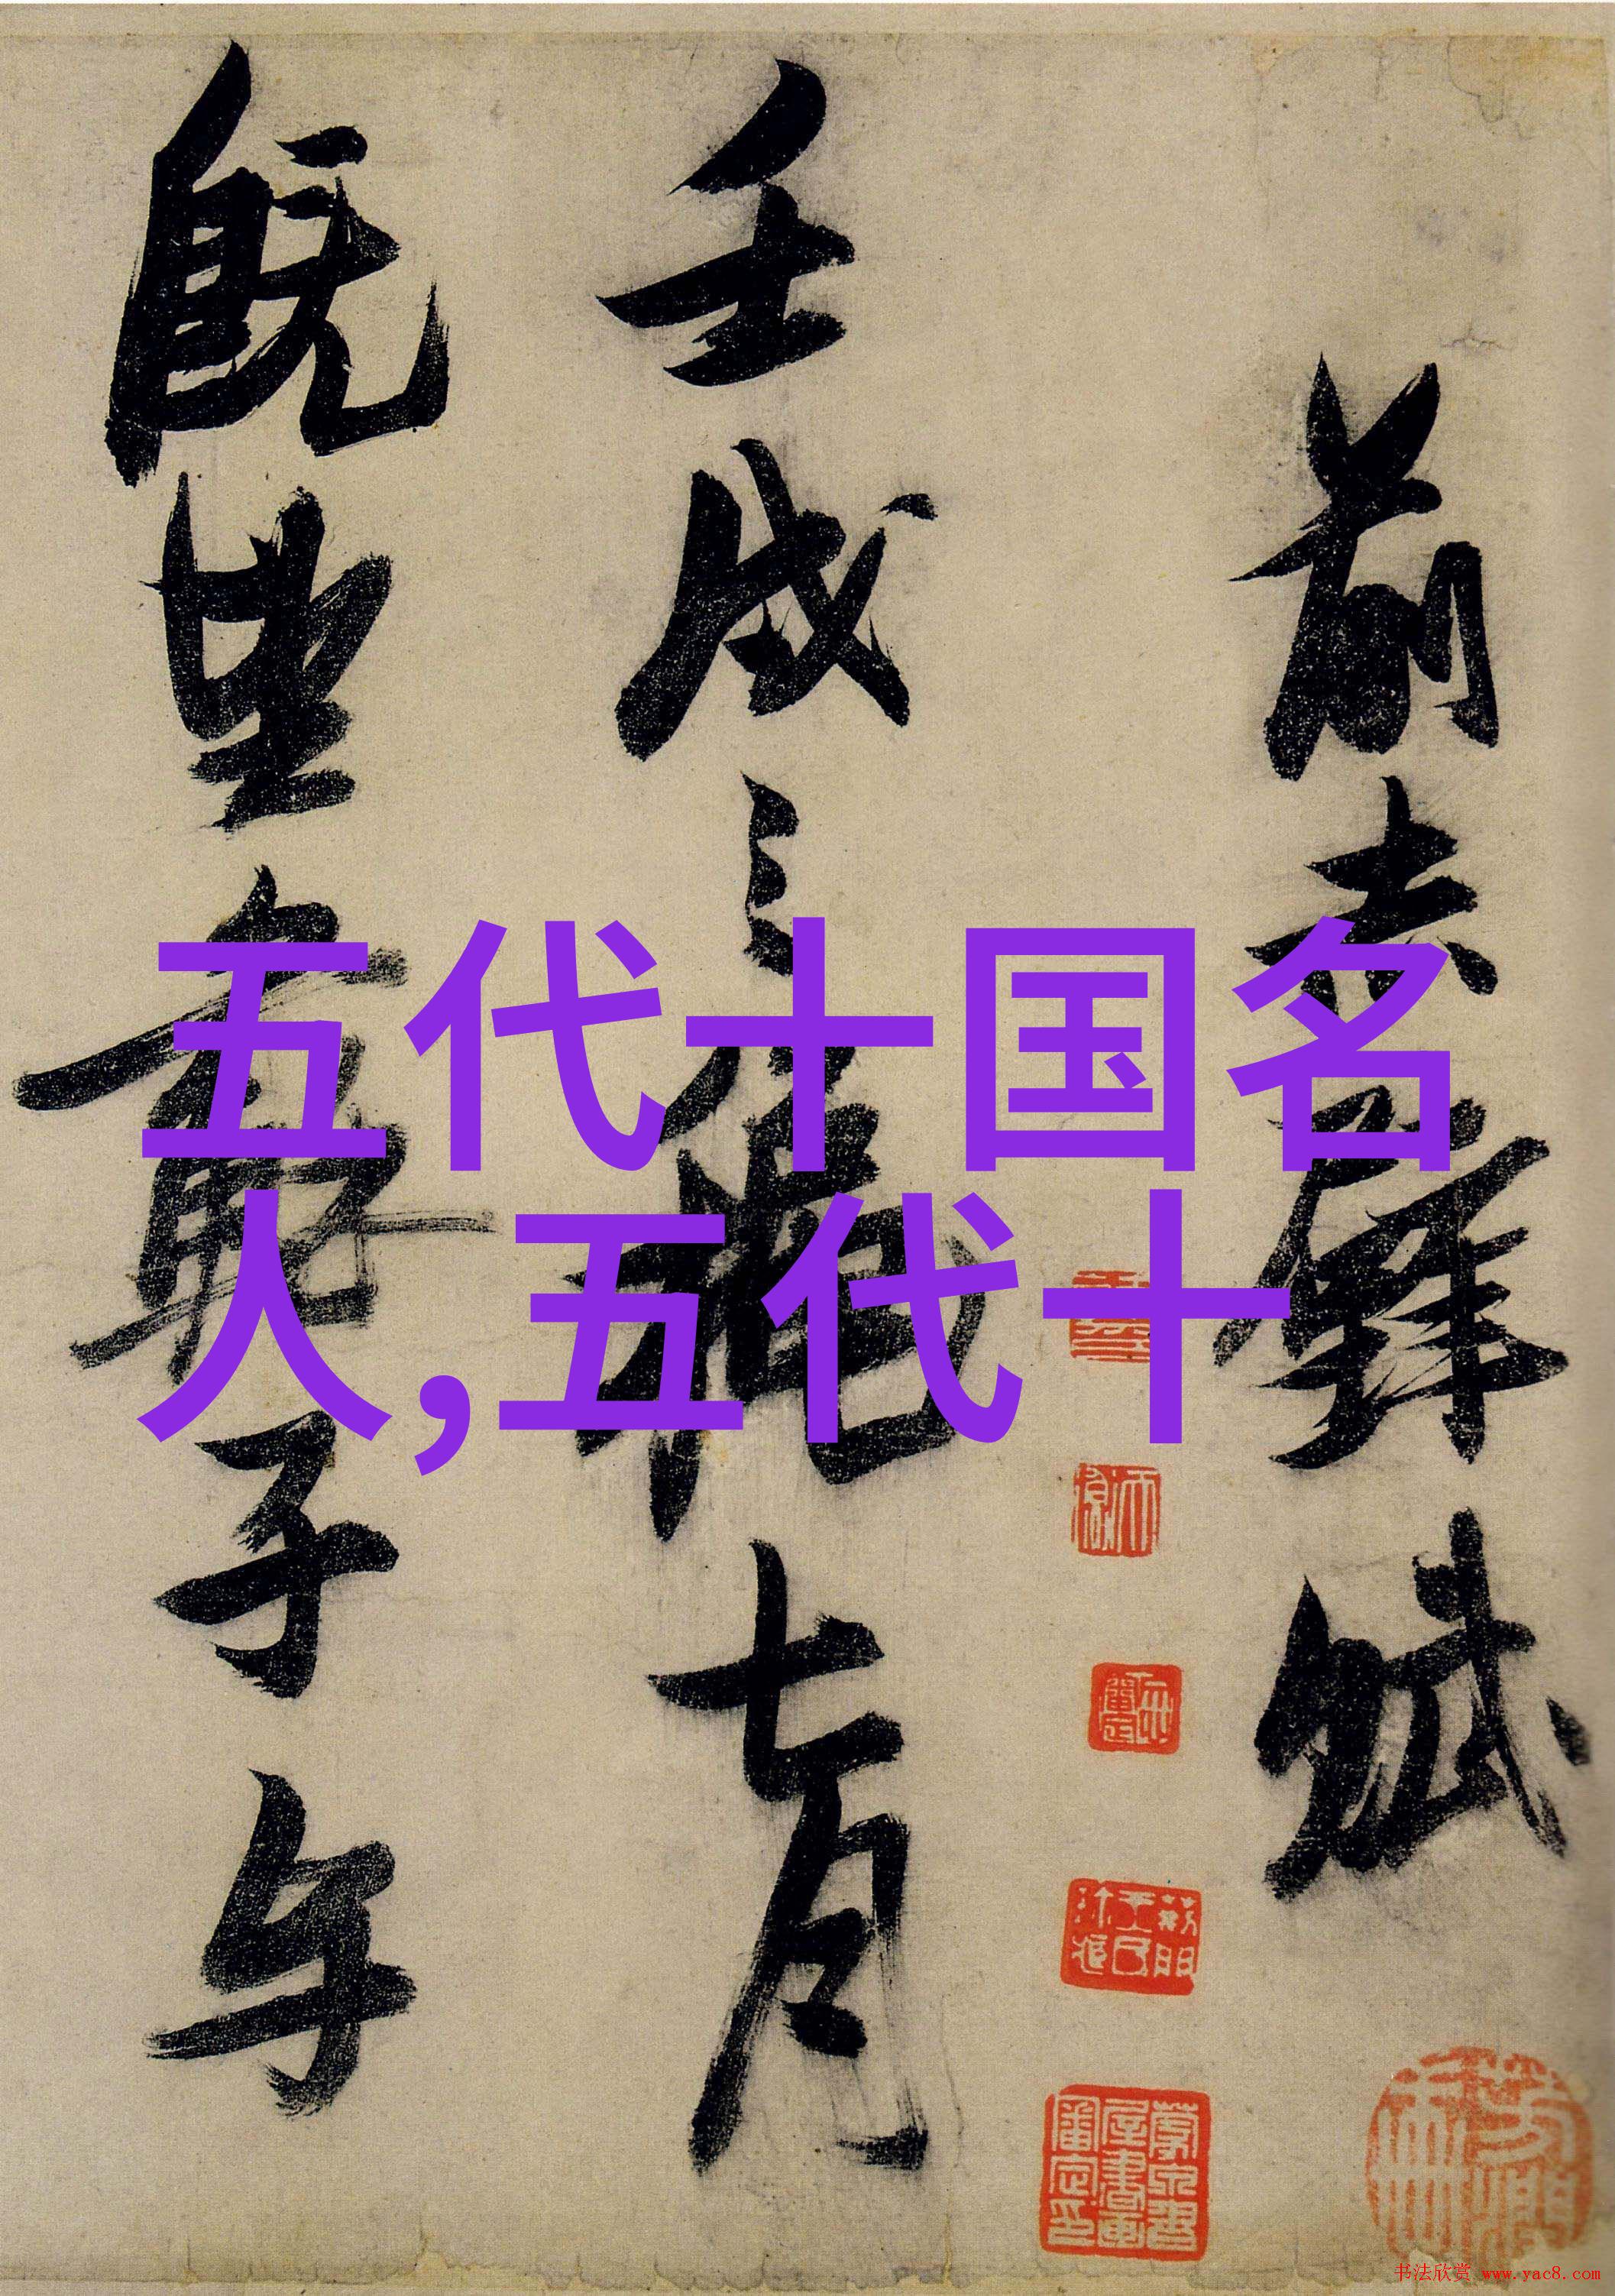 前赤壁賦
壬戌之秋七月
既望蘇子与
五代十国名
人,五代十
书法欣赏 www.yac8.com